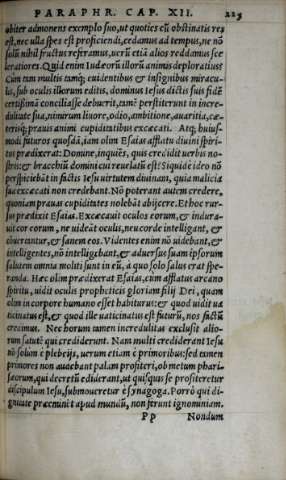 PARAPHR. CAP. XII. 223
obiter admonens exemplo suo, ut quoties cũ obstinatis res
est, nec ulla spes est proficiendi, cedamus ad tempus, ne nõ
solũ nihil fructus referamus, uerũ etiã alios reddamus sce
leratiores. Quid enim Iudæorũ illorũ animis deploratius?
Cum tam multis tamq; euidentibus & insignibus miracu-
lis, sub oculis illorum editis, dominus Iesus dictis suis fidẽ
certissimã conciliasse debuerit, tamẽ perstiterunt in incre-
dulitate sua, nimirum liuore, odio, ambitione, auaritia, cæ-
terisq; prauis animi cupiditatibus excæcati. Atq; huius-
modi futuros quosdã, iam olim Esaias afflatu diuini spiri-
tus prædixerat: Domine, inquiẽs, quis credidit uerbis no-
stris: & bracchiũ domini cui reuelatũ est? Siquidẽ ideo nõ
perspiciebãt in factis Iesu uirtutem diuinam, quia malicia
sua excæcati non credebant. Nõ poterant autem credere,
quoniam prauas cupiditates nolebãt abijcere. Et hoc rur-
sus prædixit Esaias. Excæcauit oculos eorum, & indura-
uit cor eorum, ne uideãt oculis, neu corde intelligant, &
conuertantur, & sanem eos. Videntes enim nõ uidebant, &
intelligentes, nõ intelligebant, & aduersus suam ipsorum
salutem omnia moliti sunt in eũ, à quo solo salus erat spe-
randa. Hæc olim prædixerat Esaias, cum afflatus arcano
spiritu, uidit oculis propheticis gloriam filij Dei, quam
olim in corpore humano esset habiturus: & quod uidit ua
ticinatus est, & quod ille uaticinatus est futurũ, nos factũ
cernimus. Nec horum tamen incredulitas exclusit alio-
rum salutẽ qui crediderunt. Nam multi crediderunt Iesu
nõ solũm è plebeijs, uerum etiam è primoribus: sed tamen
primores non audebant palam profiteri, ob metum phari-
sæorum, qui decretũ ediderant, ut quisquis se profiteretur
discipulum Iesu, submoueretur è synagoga. Porrò qui di-
gnitate præminẽt apud mundũ, non ferunt ignominiam.
Pp Nondum